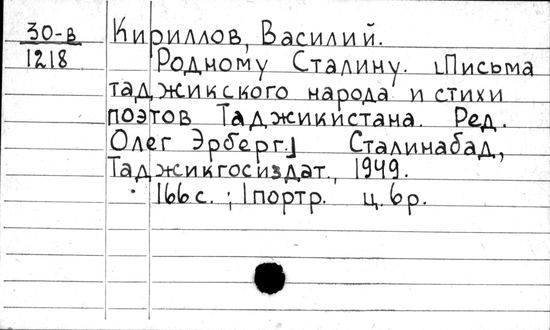 30-в
1218
Кириллов, Василий.
Родному Сталину. [Письма
таджикского народа и стихи
поэтов Таджикистана. Ред.
Олег Эрберг.] Сталинабад,
Таджикгосиздат., 1949.
166 с. ; 1 портр. ц. 6 р.